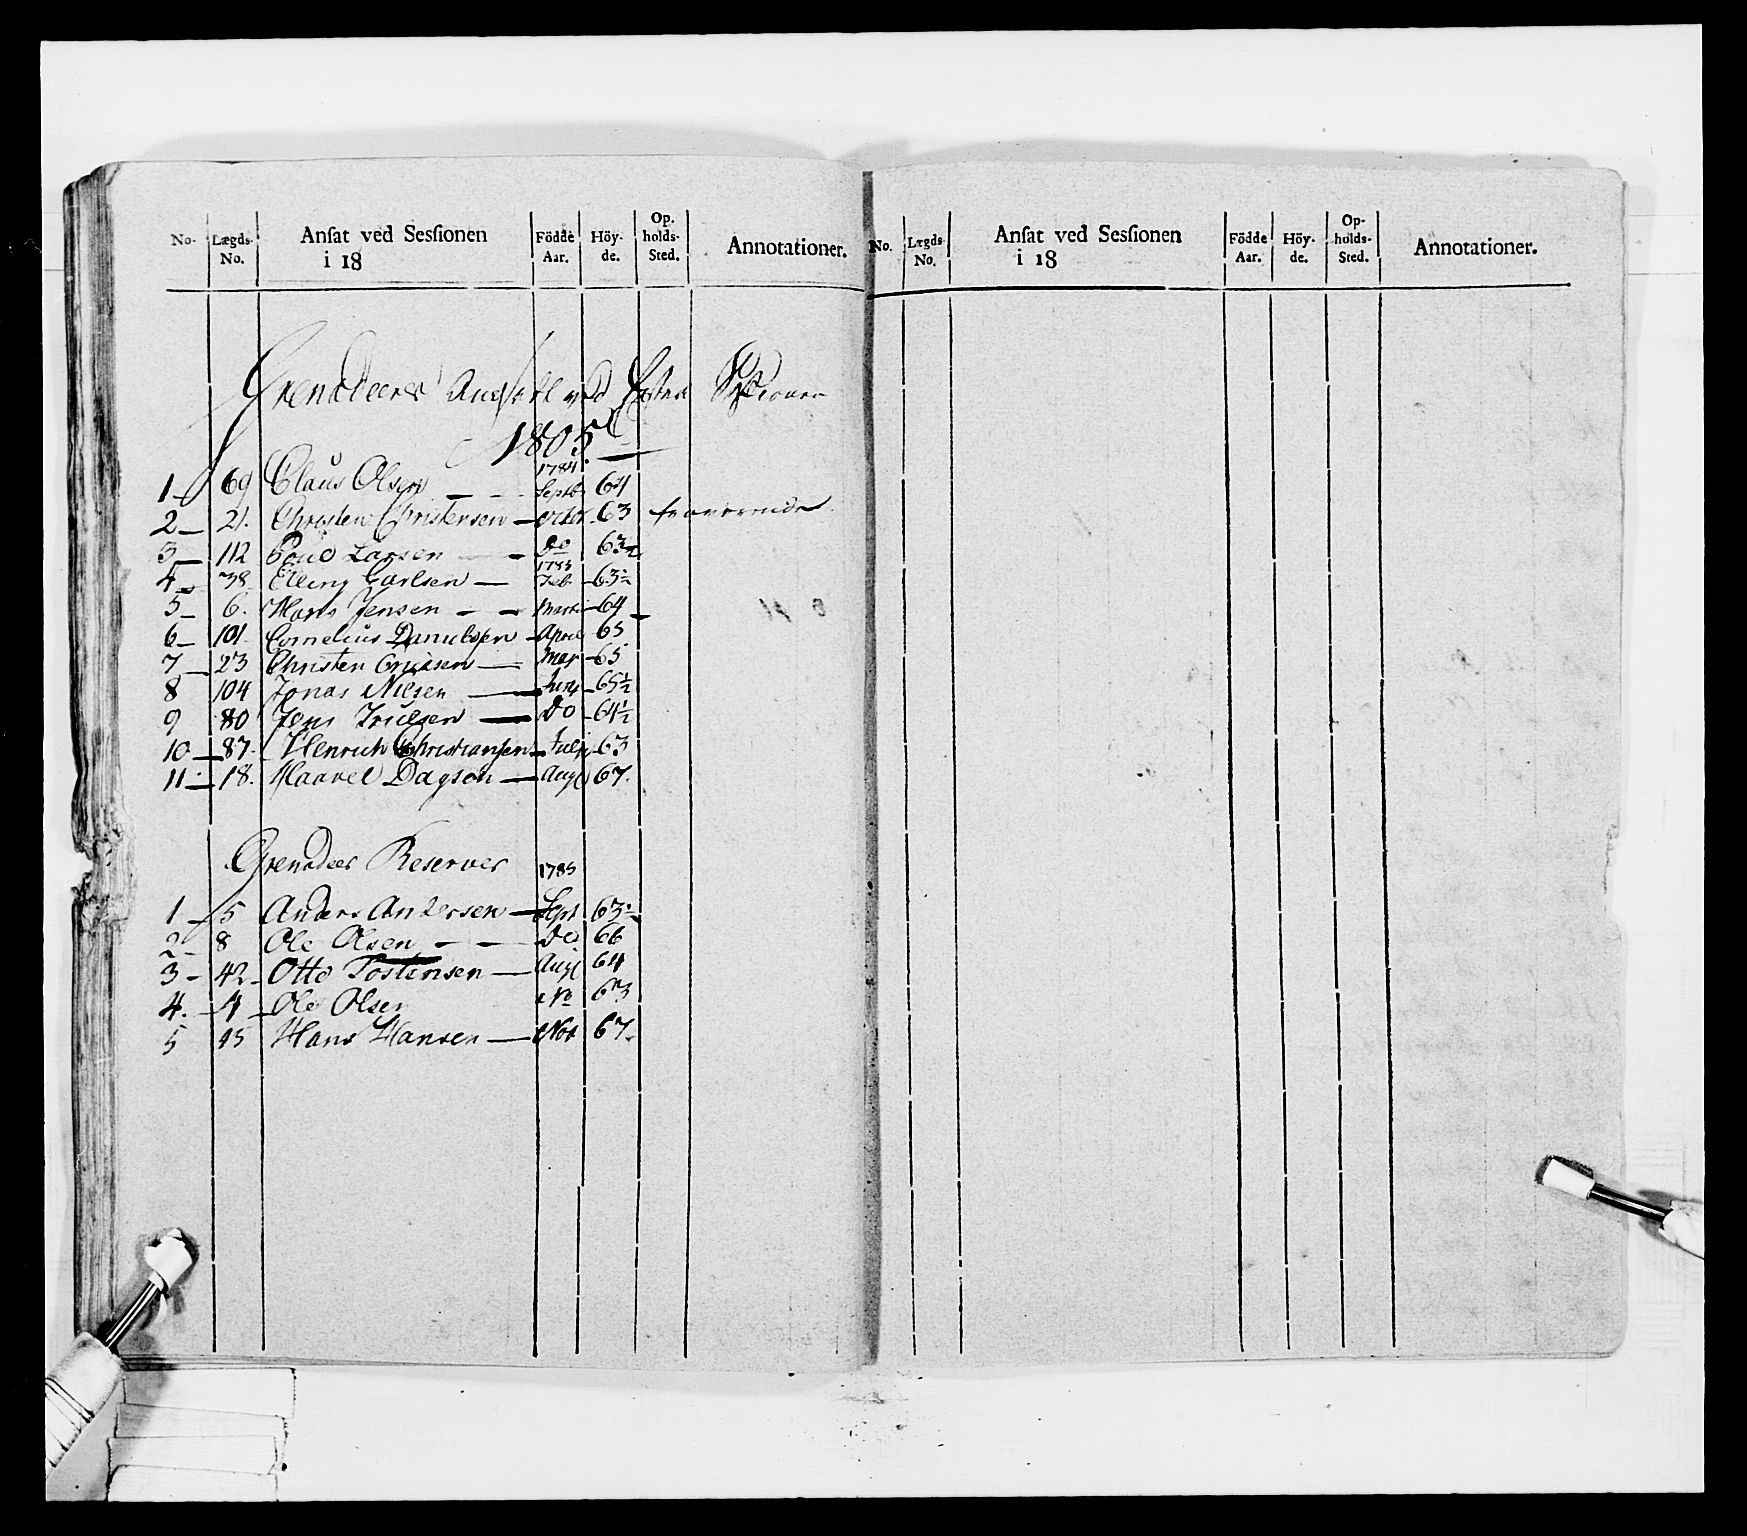 No. Lægds No. Anſat ved Sesſionen i 18 Födde Aar. Höyde. Opholds-Sted. Annotationer.
Grenadeerer Ansatt ved Extra Session
1805
1784
1 69 Claus Olsen Septb 64
2 21. Christen Christensen octbr 63 fraværende
3 112 Poul Larsen do 63½
1785
4 38 Elling Carlsen Feb 63½
5 6. Hans Jensen Marti 64
6 101 Cornelius Danielsen April 65
7 23 Christen Ericksen May 65
8 104 Jonas Nilsen Juny 65½
9 80 Jens Truelsen Do 64½
10 87 Henrich Christiansen July 63
11 18. Haavel Dagson Augt 67.
Grenadeer Reserver 1785
1 5 Anders Andersen Sept 63½
2 8 Ole Olsen Do 66
3 42 Otto Tostensen Augt 64
4. 4 Ole Olsen 63
5 45 Hans Hansen Nov 67.
No. Lægds No. Anſat ved Sesſionen i 18 Födde Aar. Höyde. Opholds-Sted. Annotationer.